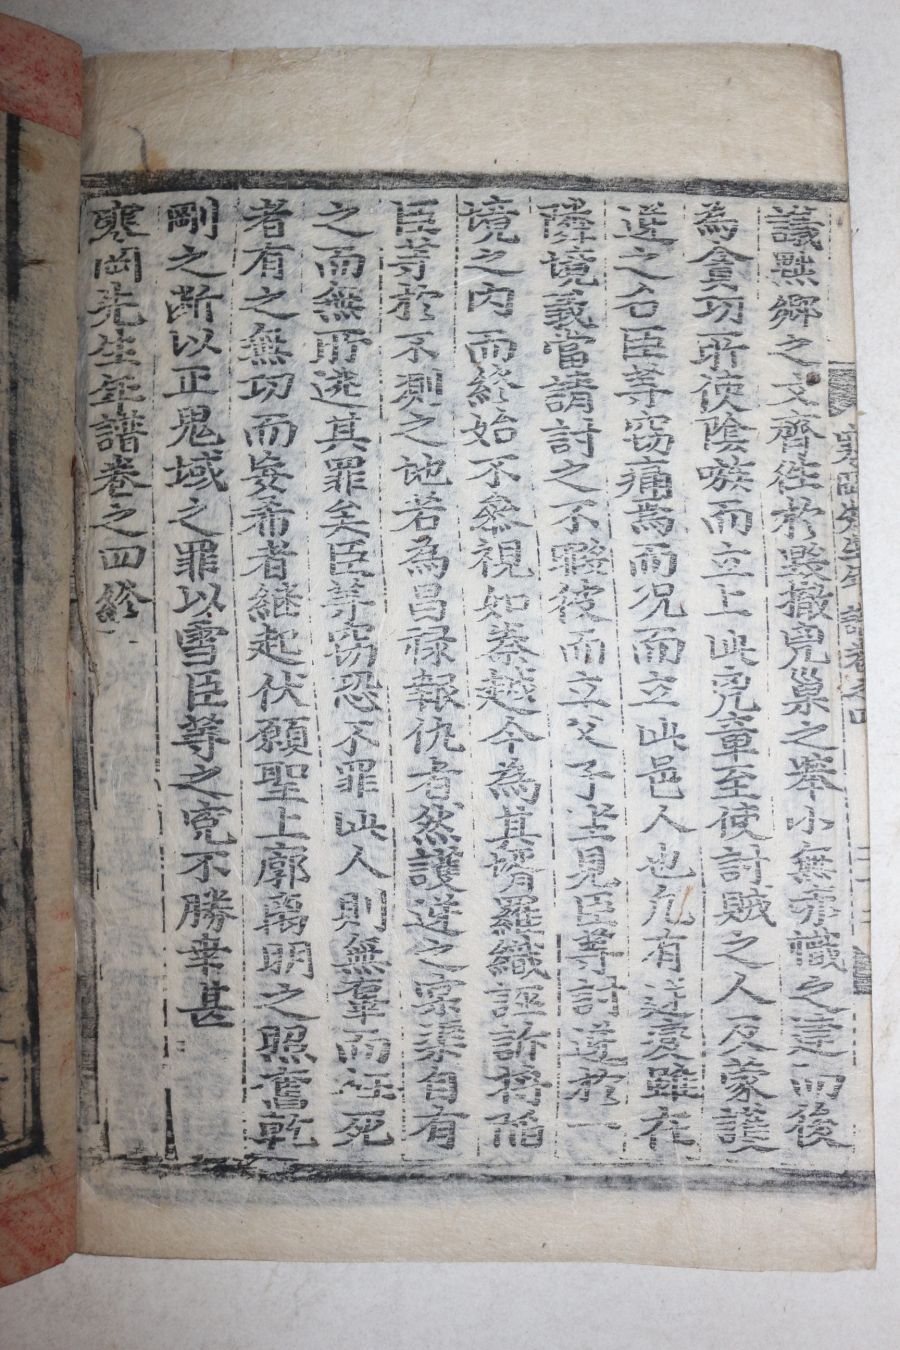 議黜鄕之文齊徃於毁撤凶巢之擧小無赤幟之意而後
為貪功所使陰嗾而立上此寃章至使討賊之人反蒙護
逆之名臣等窃痛焉而况而立此邑人也凢有逆變雖在
隣境義當請討之不暇彼而立父子坐見臣等討逆於一
境之內而終始不叅視如秦越今為其壻羅織誣訴將陷
臣等於不測之地若為昌祿報仇者然護逆之案渠自有
之而無所逃其罪矣臣等窃恐不罪此人則無辜而徃死
者有之無功而妄希者繼起伏願聖上廓离明之照奮乾
剛之斷以正鬼域之罪以雪臣等之寃不勝幸甚
寒岡先生年譜卷之四終
寒岡先生年譜卷之四